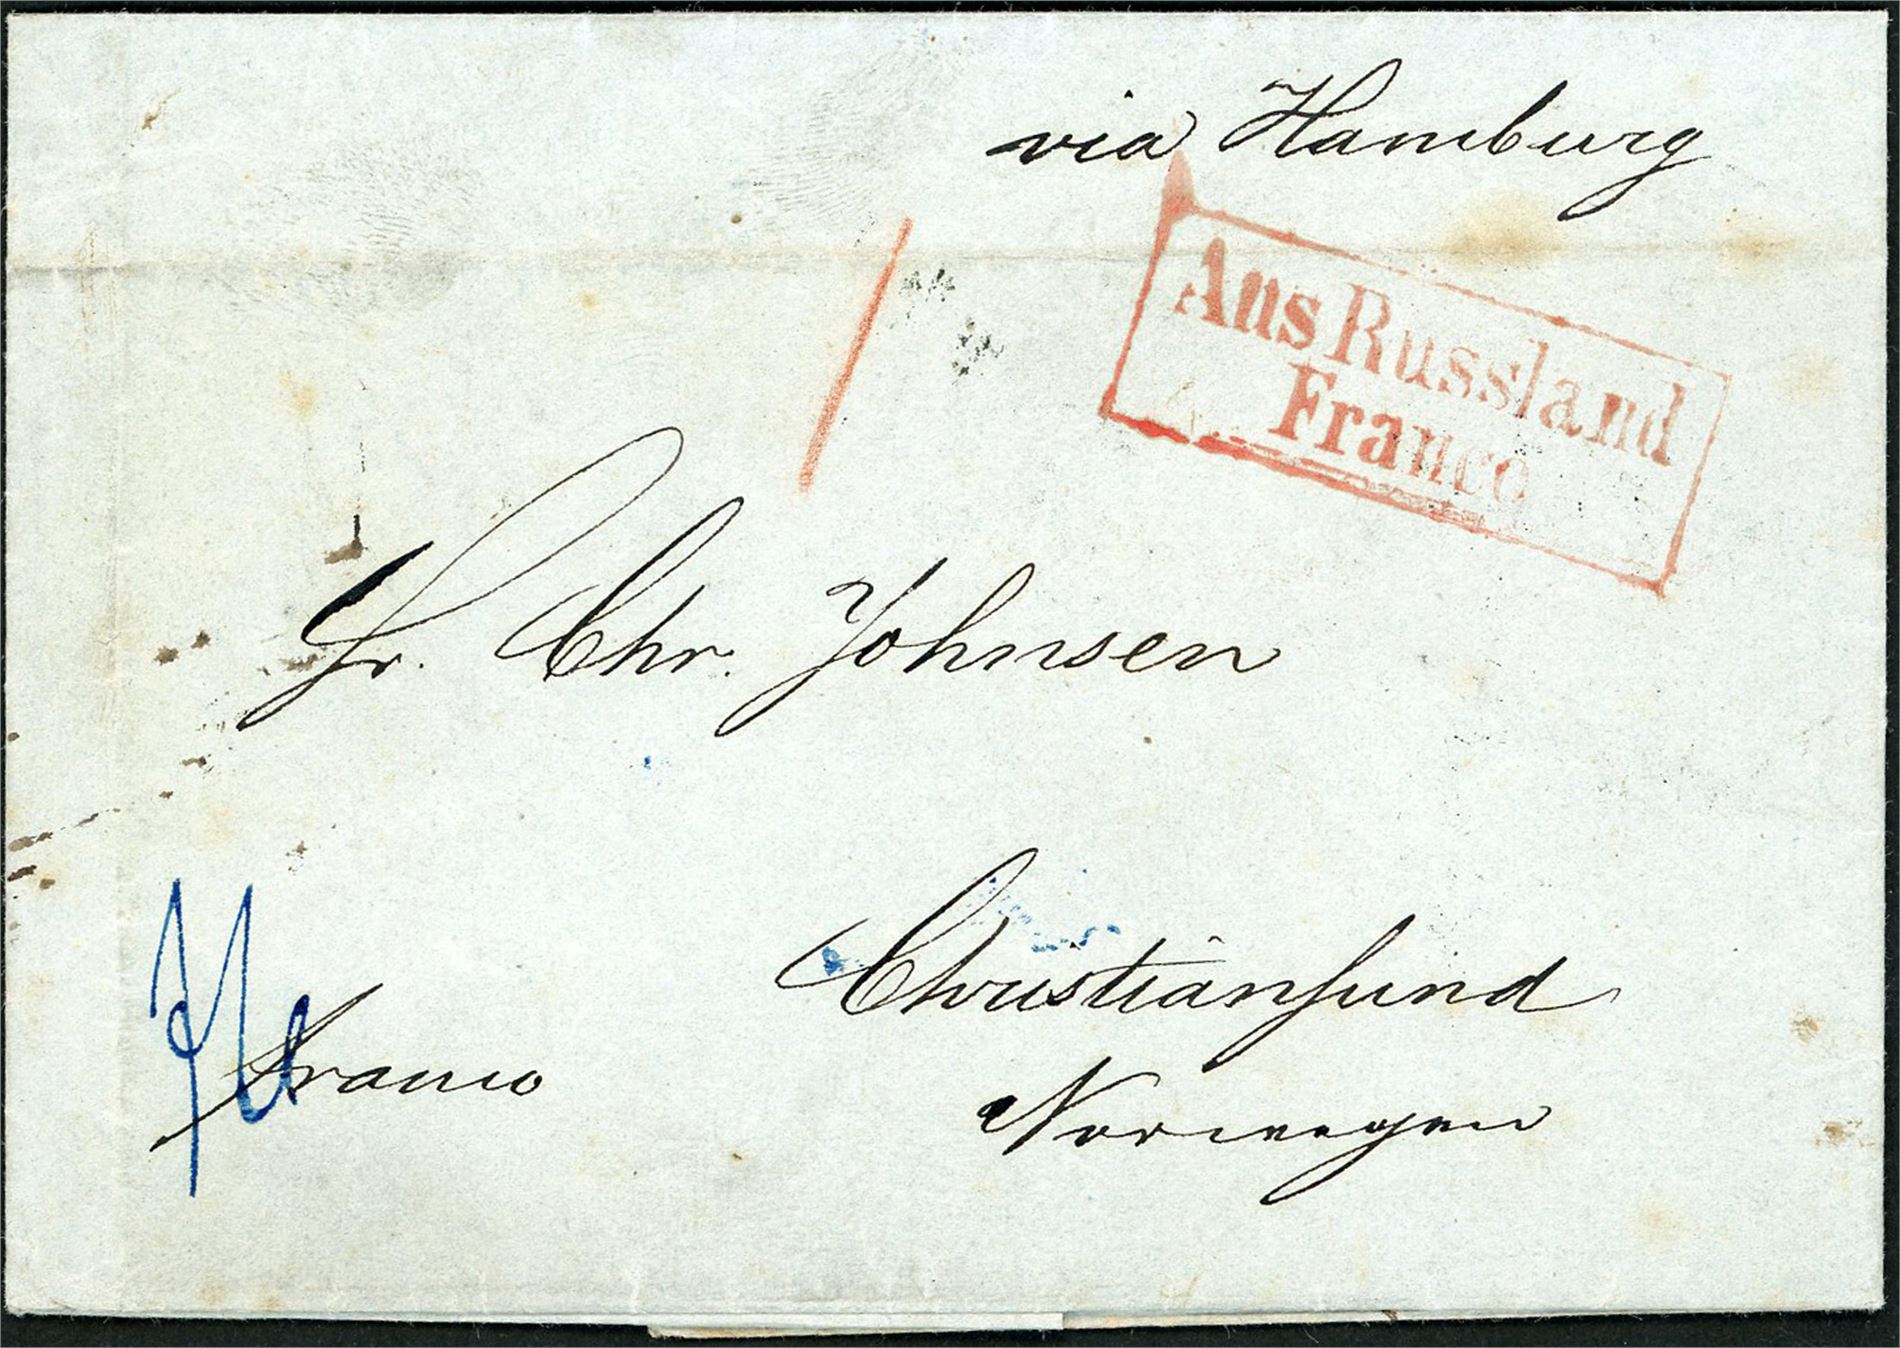 via Hamburg
Aus Russland
Franco
Hr. Chr. Johnsen
Christiansund
Franco
Norwegen